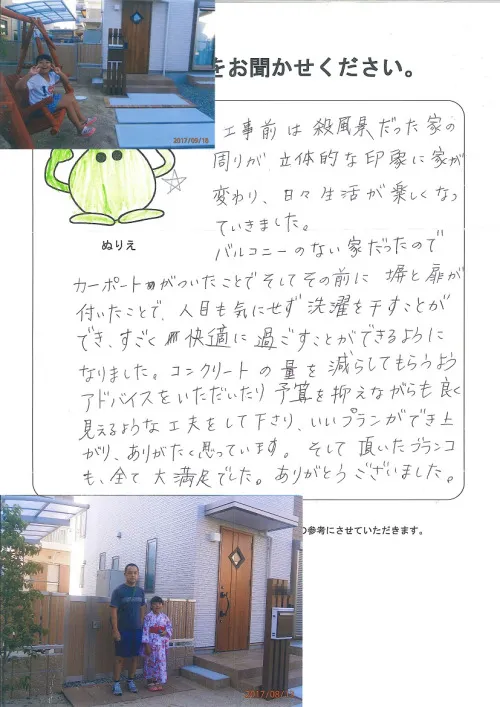 をお聞かせください。
2017/08/16
工事前は殺風景だった家の
周りが立体的な印象に家が
変わり、日々生活が楽しくなっ
ていきました。
ぬりえ
バルコニーのない家だったので
カーポートがついたことでそしてその前に塀と扉が
付いたことで、人目も気にせず洗濯を干すことが
でき、すごく快適に過ごすことができるように
なりました。コンクリートの量を減らしてもらうよう
アドバイスをいただいたり予算を抑えながらも良く
見えるような工夫をして下さり、いいプランができ上
がり、ありがたく思っています。そして頂いたブランコ
も、全て大満足でした。ありがとうございました。
の参考にさせていただきます。
2017/08/